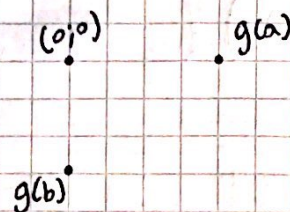 (0;0)
g(a)
g(b)